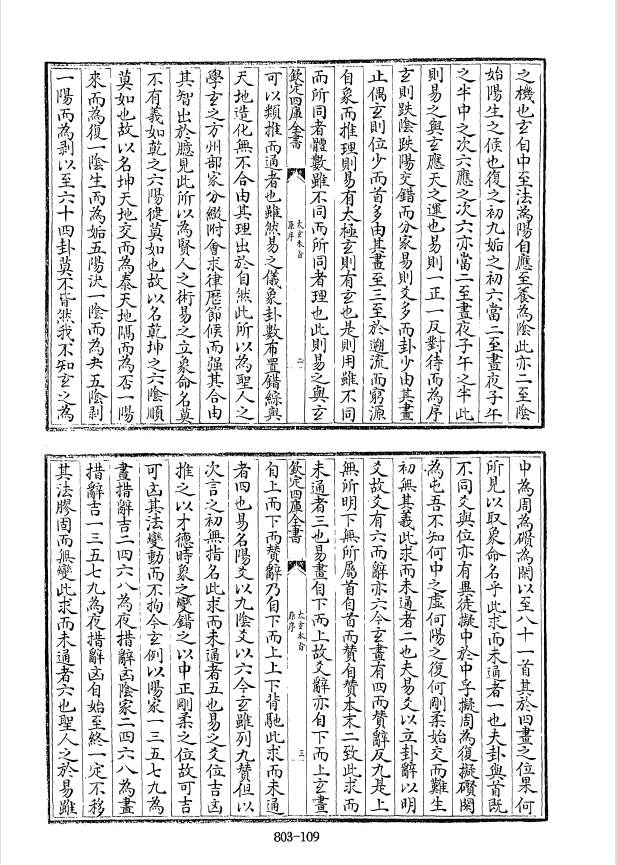 之機也玄自中至法為陽自應至養為陰此亦二至陰
始陽生之候也復之初九姤之初六當二至晝夜子午
之半中之次六應之次六亦當二至晝夜子午之半此
則易之與玄應天之運也易則一正一反對待而為序
玄則跌陰跌陽交錯而分家易則爻多而卦少由其畫
止偶玄則位少而首多由其畫至三至於遡流而窮源
自象而推理則易有太極玄則有玄也是則用雖不同
而所同者體數雖不同而所同者理也此則易之與玄
欽定四庫全書
太玄本旨
原序
二
可以類推而通者也雖然易之儀象卦數布置錯綜與
天地造化無不合由其理出於自然此所以為聖人之
學玄之方州部家分綴附會求律歷節候而强其合由
其智出於臆見此所以為賢人之術易之立象命名莫
不有義如乾之六陽健莫如也故以名乾坤之六陰順
莫如也故以名坤天地交而為泰天地隔而為否一陽
來而為復一陰生而為姤五陽決一陰而為夬五陰剝
一陽而為剥以至六十四卦莫不皆然我不知玄之為
中為周為礥為閑以至八十一首其於四畫之位果何
所見以取象命名乎此求而未通者一也夫卦與首既
不同爻與位亦有異徒擬中於中孚擬周為復擬礥閑
為屯吾不知何中之虛何陽之復何剛柔始交而難生
初無其義此求而未通者二也夫易爻以立卦辭以明
爻故爻有六而辭亦六今玄畫有四而贊辭反九是上
無所明下無所屬首自首而贊自贊本末二致此求而
未通者三也易畫自下而上故爻辭亦自下而上玄畫
欽定四庫全書
太玄本旨
原序
三
自上而下而贊辭乃自下而上上下背馳此求而未通
者四也易名陽爻以九陰爻以六今玄雖列九贊但以
次言之初無指名此求而未通者五也易之爻位吉凶
推之以才德時象之變錯之以中正剛柔之位故可吉
可凶其法變動而不拘今玄例以陽家一三五七九為
晝措辭吉二四六八為夜措辭凶陰家二四六八為晝
措辭吉一三五七九為夜措辭凶自始至終一定不移
其法膠固而無變此求而未通者六也聖人之於易雖
803-109